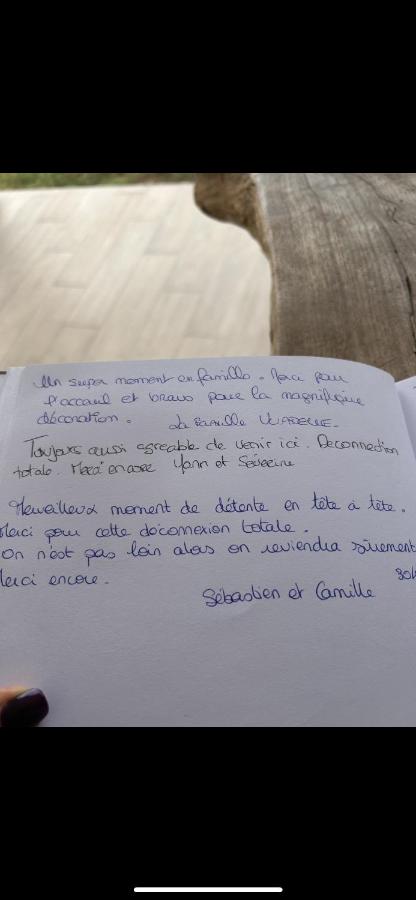 Un super moment en famille. Merci pour
l'accueil et bravo pour la magnifique
décoration. La famille
Toujours aussi agreable de venir ici. Deconnection
totale. Merci encore Yann et Séverine
Merveilleux moment de détente en tête à tête.
Merci pour cette déconnexion totale.
On n'est pas loin alors on reviendra sûrement
Merci encore.
Sébastien et Camille